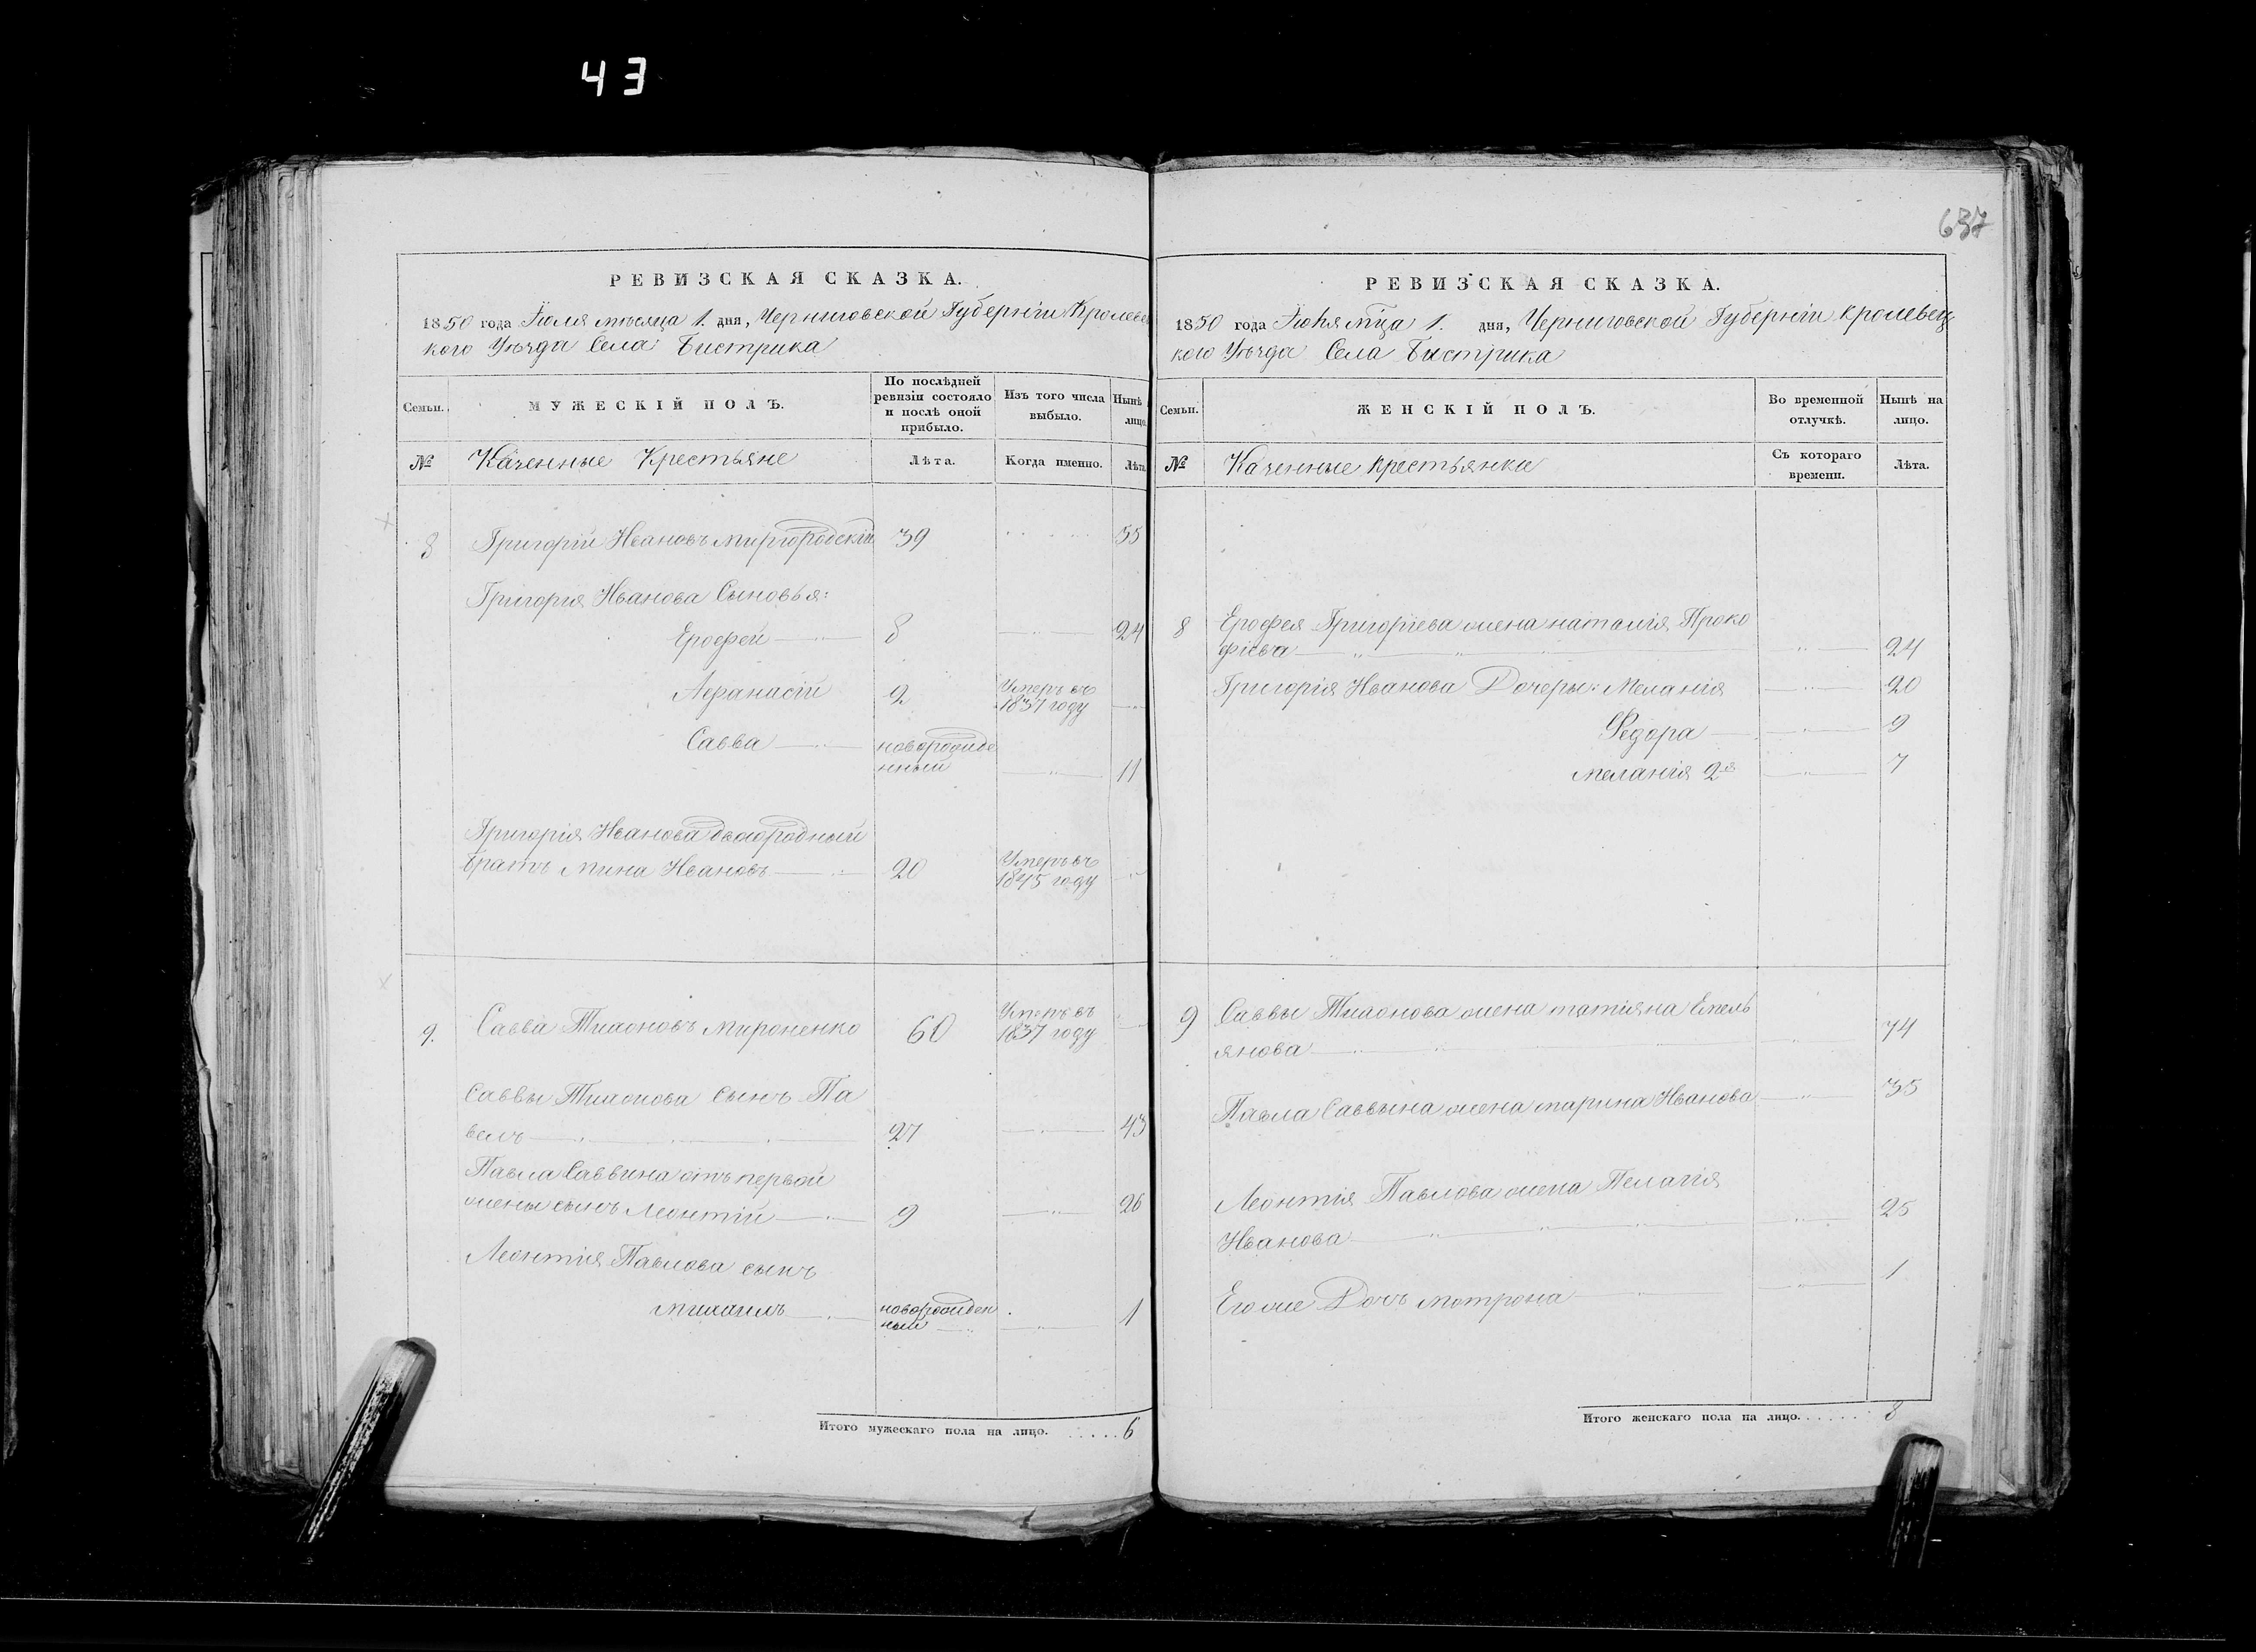 43
637
РЕВИЗСКАЯ СКАЗКА.
1850 года Іюля мѣсяца 1. дня, Черниговской Губерніи Кролевец
кого Уѣзда Села Бистрика
Семьи.
МУЖЕСКІЙ ПОЛЪ.
По послѣдней ревизіи состояло и послѣ оной прибыло.
Изъ того числа выбыло.
Нынѣ лицо.
№
Казенные Крестьяне
Лѣта.
Когда именно.
Лѣта
8 Григорій Ивановъ Миргородскій 39 55
Григорія Иванова Сыновья:
Ерофей 8 24
Афанасій 2 Умеръ въ
1837 году
Савва новорожде
нный 11
Григорія Иванова двоюродный
братъ Мина Ивановъ 20 Умеръ въ
1845 году
9. Савва Тихоновъ Мироненко 60 Умеръ въ
1837 году
Саввы Тихонова сынъ Па
велъ 27 43
Павла Саввина отъ первой
жены сынъ Леонтій 9 26
Леонтія Павлова сынъ
Михаилъ новорожден
ный 1
Итого мужескаго пола на лицо. 6
РЕВИЗСКАЯ СКАЗКА.
1850 года Іюля мца 1. дня, Черниговской Губерніи Кролевец
кого Уѣзда Села Бистрика
Семьи.
ЖЕНСКІЙ ПОЛЪ.
Во временной отлучкѣ.
Нынѣ на лицо.
№
Казенные Крестьянки
Съ котораго времени.
Лѣта.
8 Ерофея Григоріева жена Наталія Проко
фіева 24
Григорія Иванова Дочеры: Меланія 20
Федора 9
Меланія 2я 7
9 Саввы Тихонова жена Татіяна Емель
янова 74
Павла Саввына жена Марина Иванова 35
Леонтія Павлова жена Пелагія
Иванова 25
Его же Дочь Мотрона 1
Итого женскаго пола на лицо. 8